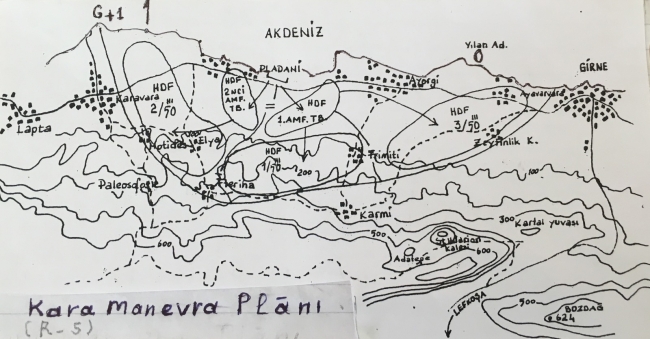 G+1
AKDENİZ
Yılan Ad.
GİRNE
PLADANİ
HDF
2/50 III
HDF
2nci
AMF.
TB.
=
HDF
1.AMF.TB.
Ayorgi
HDF
3/50 III
Ayavarvara
Karavara
Lapta
Motides
Elya
HDF
1/50 III
200
Trimiti
Zeytinlik K.
100
Paleosofos
Feriha
Karmi
300
Kartal yuvası
500
600
St. Hilarion
Kalesi
600
Adatepe
LEFKOŞA
500
BOZDAĞ
624
Kara Manevra Plânı
(R-5)